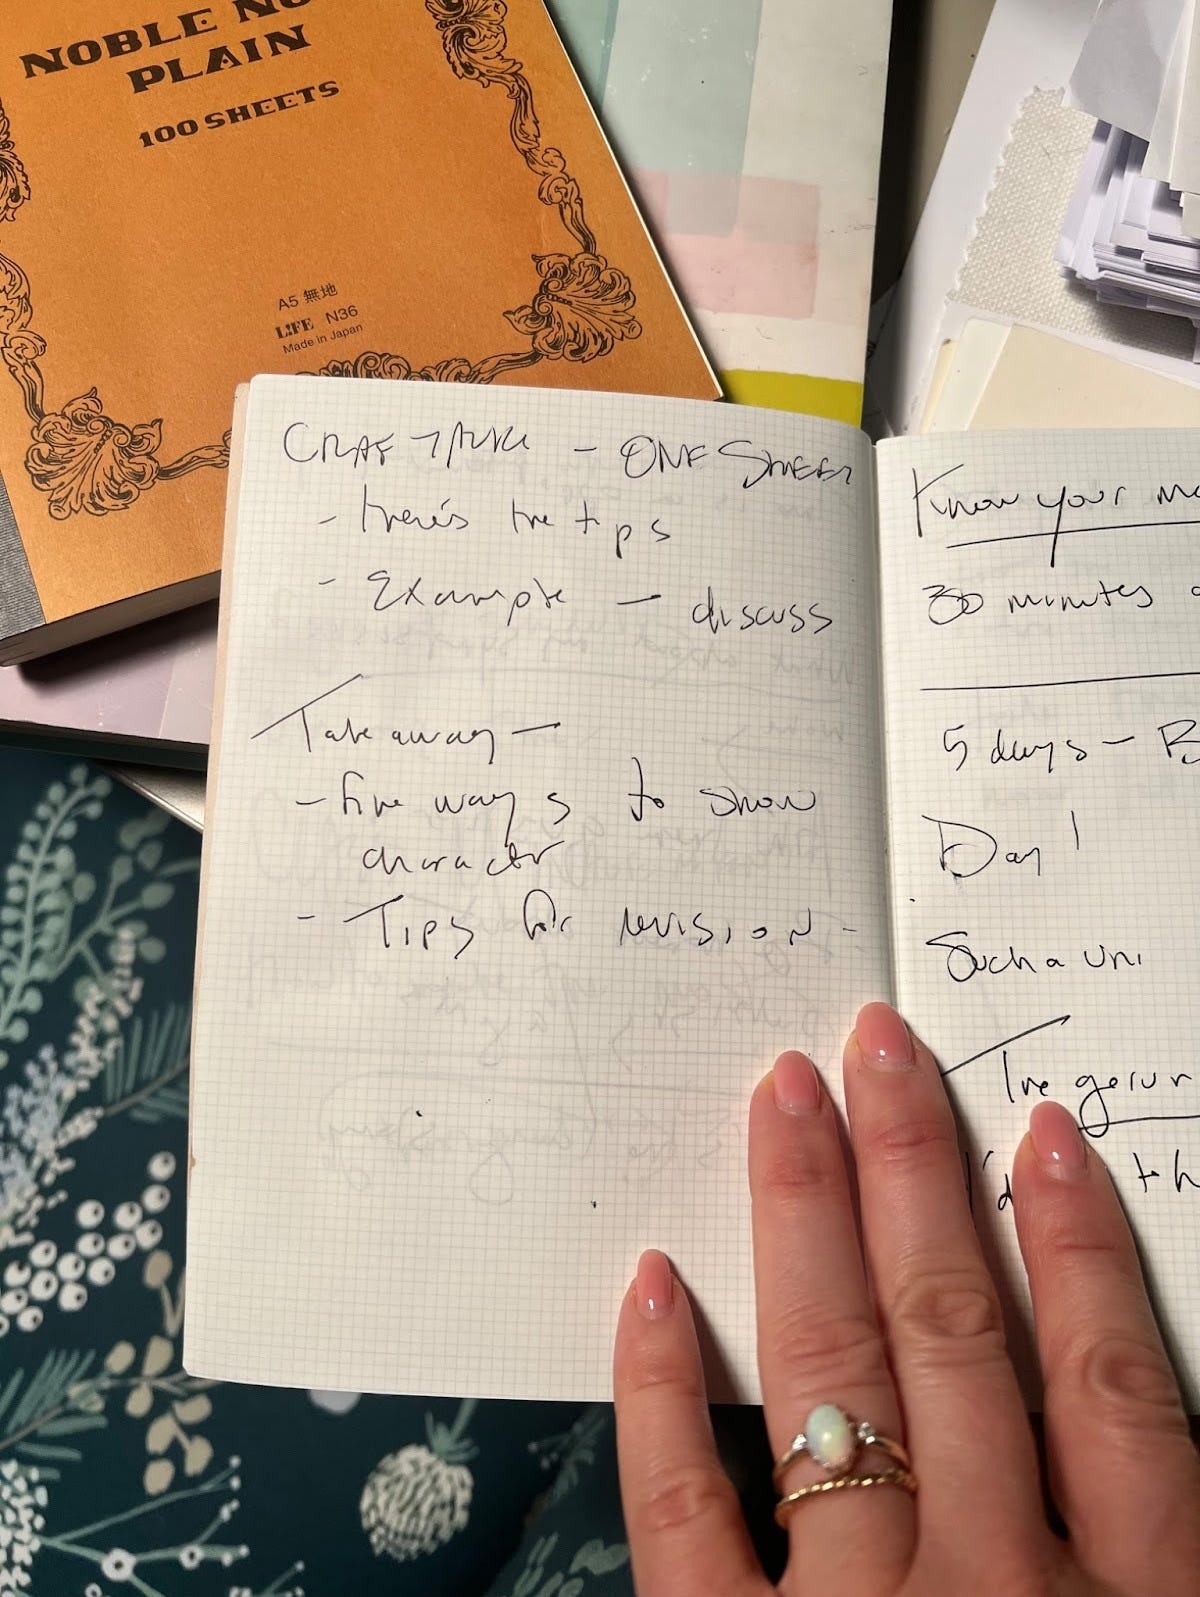 NOBLE NO
PLAIN
100 SHEETS
A5 無地
LIFE N36
Made in Japan
CRAFT TALK - ONE SHEET
- here's the tips
- Example - discuss
Take away -
- five ways to show
character
- Tips for revision -
Know your
30 minutes
5 days -
Day 1
Such a
The